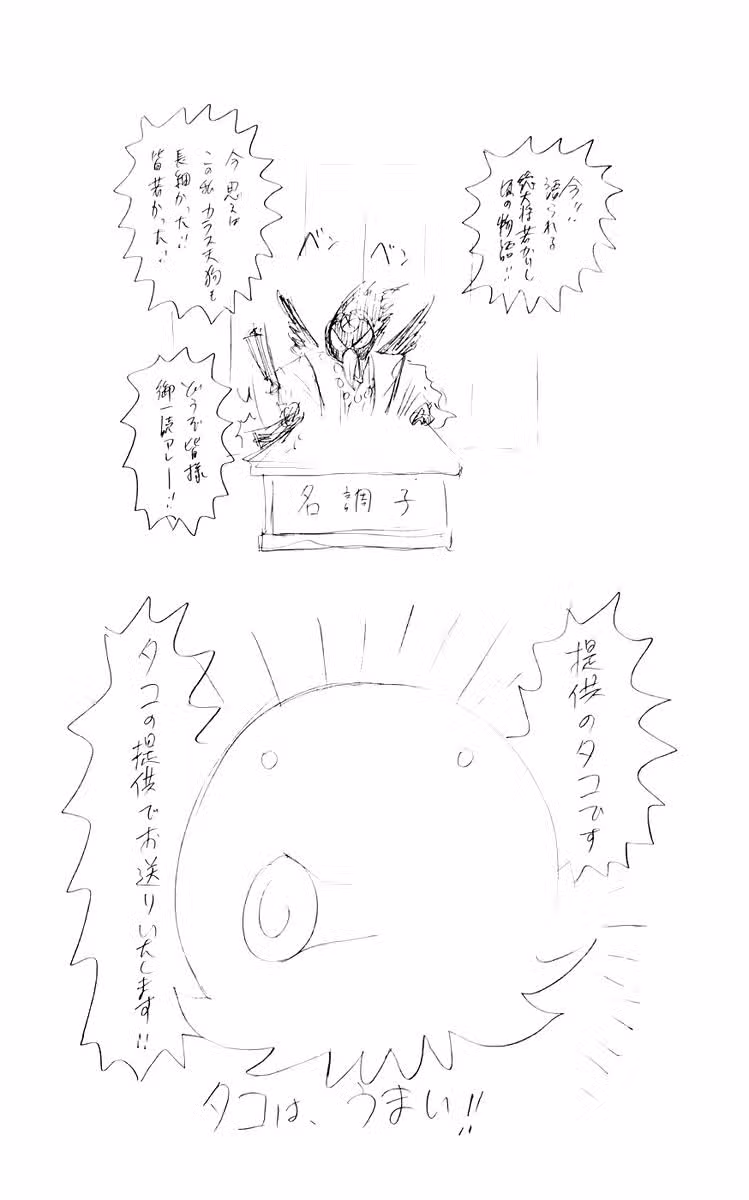 今!!
語られる
総大将若かりし
頃の物語!!
ベン
ベン
今思えば
この私カラス天狗も
長細かった!!
皆若かった!!
どうぞ皆様
御一読アレー!!
名調子
提供のタコです
タコの提供でお送りいたします!!
タコは、うまい!!